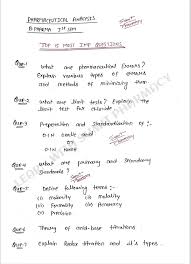 PHARMACEUTICAL ANALYSIS
B.PHARMA 1ST SEM
TOP 15 MOST IMP QUESTIONS
Que-1 What are pharmaceutical
Explain various types of errors
and methods of minimizing them
Que-2 What are limit tests? Explain the
limit test for
Que-3 Preparation and Standardization of :-
0.1N Oxalic acid
0.1N
Que-4 What are primary and Secondary
Standards?
Que-5 Define following terms :-
(i) Molarity (ii) Molality
(iii) Normality (iv) Accuracy
(v) Precision
Que-6 Theory of acid-base titrations
Que-7 Explain Redox titration and it's types.